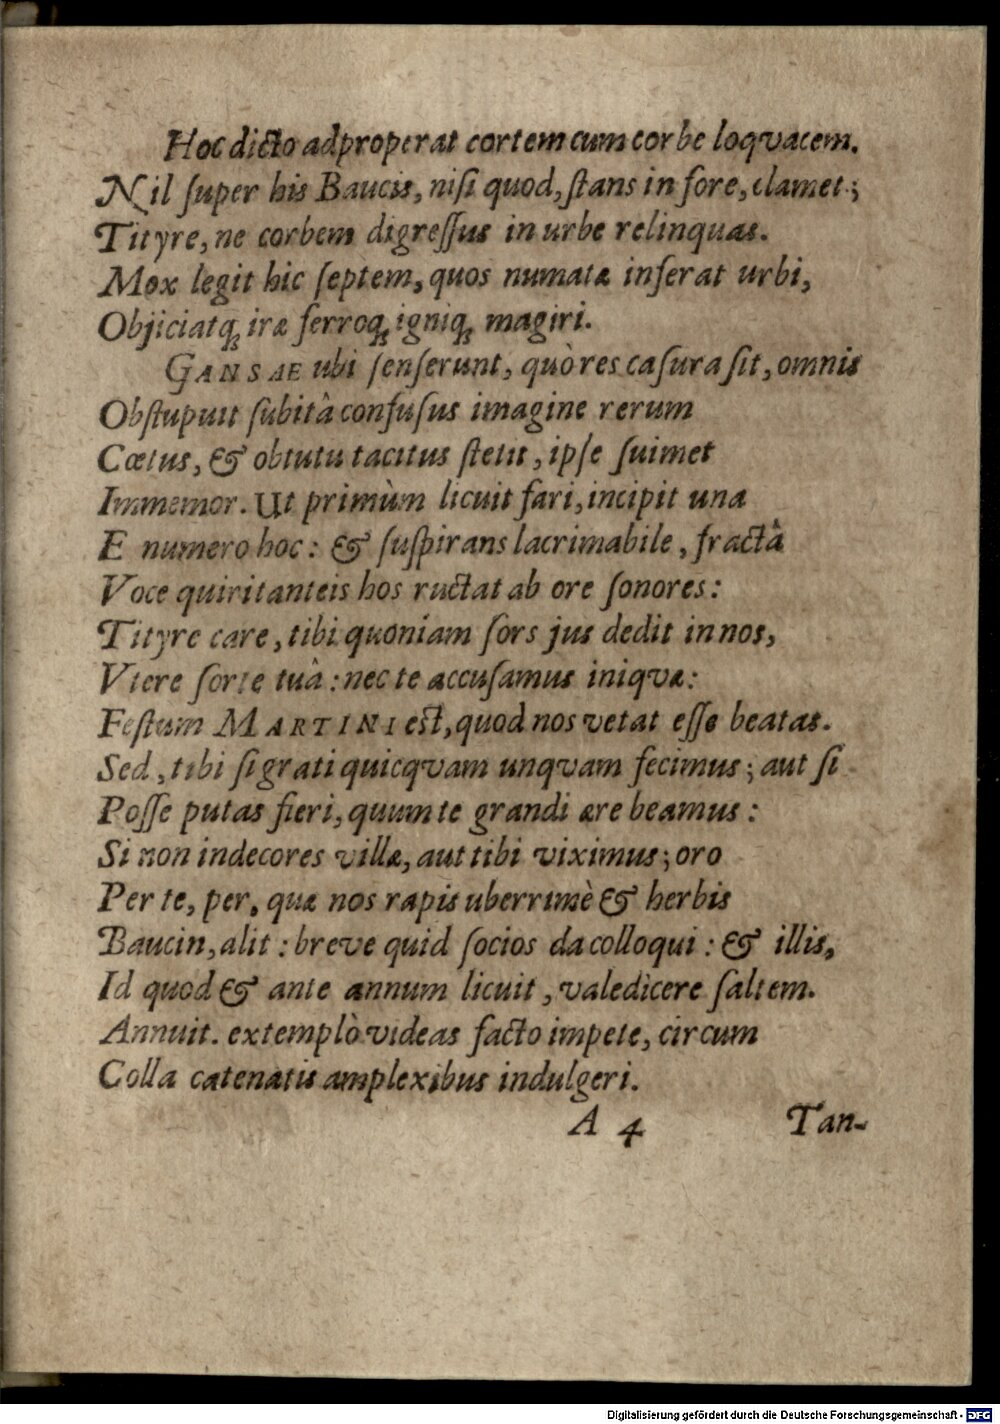 Hoc dicto adproperat cortem cum corbe loqvacem.
Nil ſuper his Baucis, niſi quod, ſtans in fore, clamet;
Tityre, ne corbem digreſſus in urbe relinquas.
Mox legit hic ſeptem, quos numatæ inferat urbi,
Objiciatq́; iræ ferroq́; igniq́; magiri.
GANSAE ubi ſenſerunt, quò res caſura ſit, omnis
Obſtupuit ſubitâ confuſus imagine rerum
Cœtus, & obtutu tacitus ſtetit, ipſe ſuimet
Immemor. Ut primùm licuit fari, incipit una
E numero hoc: & ſuſpirans lacrimabile, fractâ
Voce quiritanteis hos ructat ab ore ſonores:
Tityre care, tibi quoniam ſors jus dedit in nos,
Vtere ſorte tuâ: nec te accuſamus iniqvæ:
Feſtum MARTINI eſt, quod nos vetat eſſe beatas.
Sed, tibi ſi grati quicqvam unqvam fecimus; aut ſi
Poſſe putas fieri, quum te grandi ære beamus:
Si non indecores villæ, aut tibi viximus; oro
Per te, per, quæ nos rapis uberrimè & herbis
Baucin, alit: breve quid ſocios da colloqui: & illis,
Id quod & ante annum licuit, valedicere ſaltem.
Annuit. extemplò videas facto impete, circum
Colla catenatis amplexibus indulgeri.
A 4 Tan-
Digitalisierung gefördert durch die Deutsche Forschungsgemeinschaft - DFG